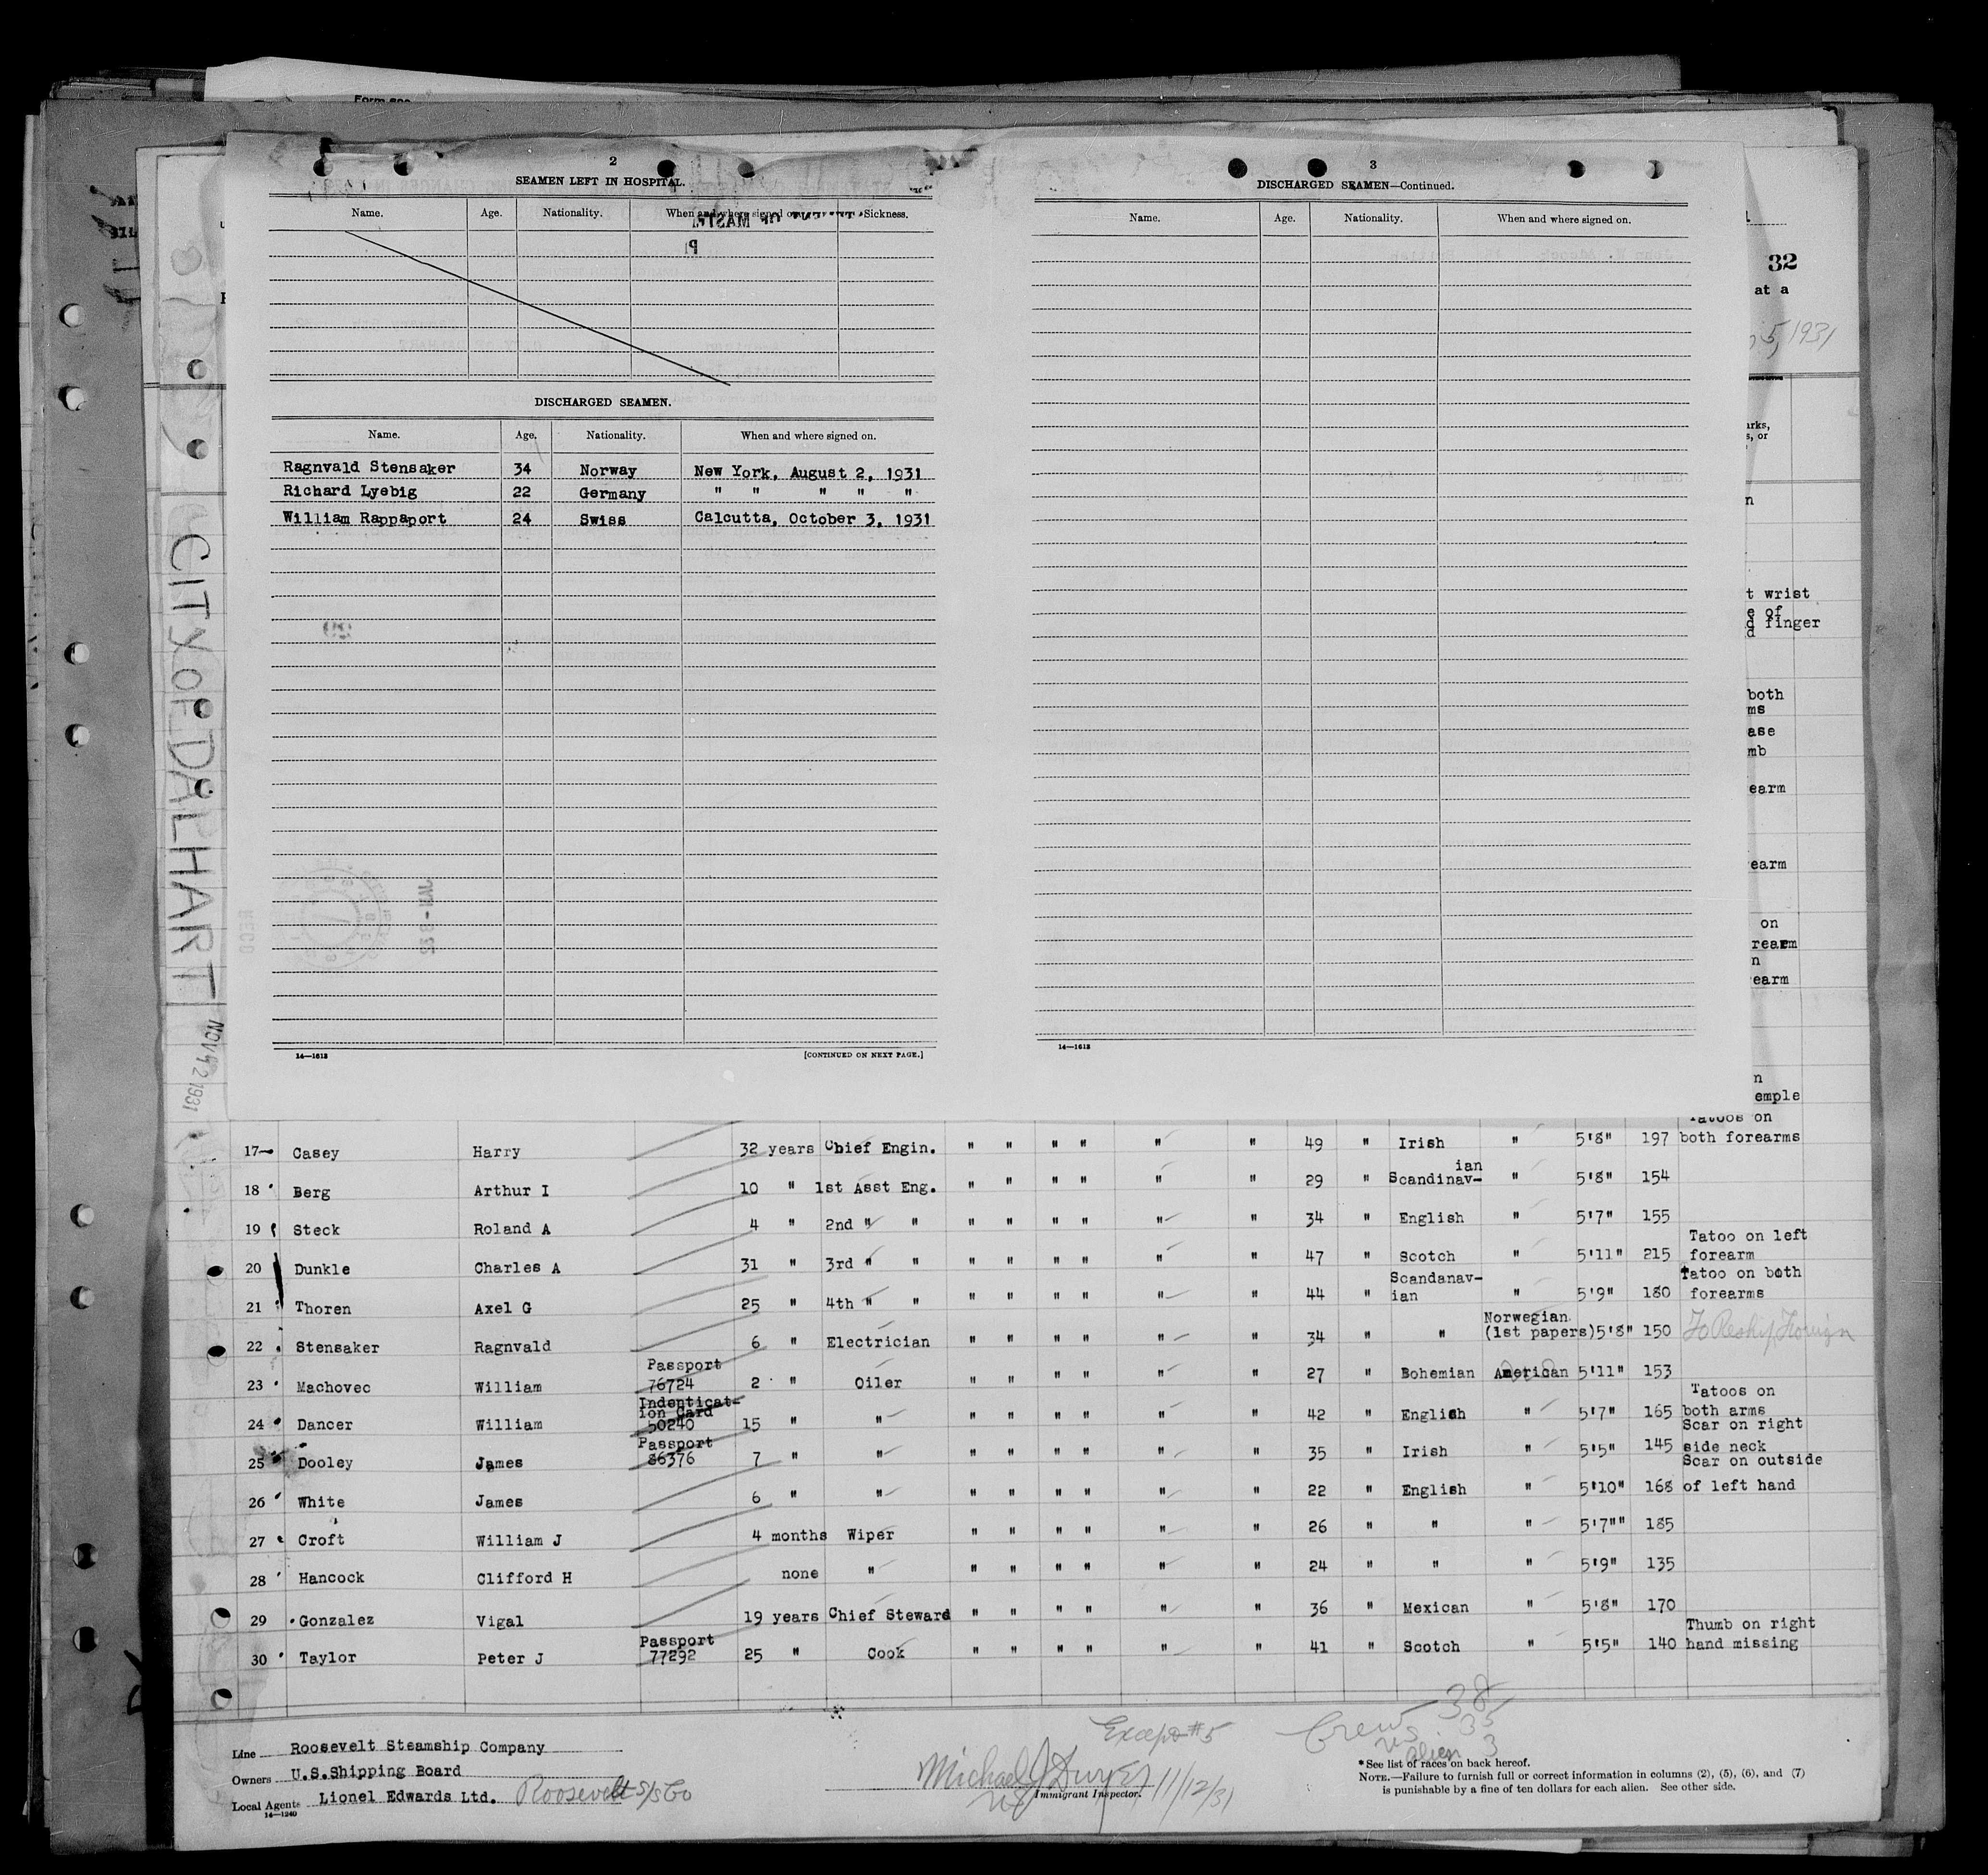 Form 500
2
SEAMEN LEFT IN HOSPITAL.
Name. Age. Nationality. When and where signed on. Sickness.
DISCHARGED SEAMEN.
Name. Age. Nationality. When and where signed on.
Ragnvald Stensaker 34 Norway New York, August 2, 1931
Richard Lyebig 22 Germany " " " " "
William Rappaport 24 Swiss Calcutta, October 3, 1931
14—1613 [CONTINUED ON NEXT PAGE.]
3
DISCHARGED SEAMEN—Continued.
Name. Age. Nationality. When and where signed on.
14—1613
32
at a
5, 1931
t wrist
e of
d finger
d
both
ms
ase
mb
earm
earm
on
rearm
n
earm
n
emple
CITY OF DALHART
NOV 12 1931
Tatoos on
17 Casey Harry 32 years Chief Engin. " " " " " " 49 " Irish " 5'8" 197 both forearms
18 Berg Arthur I 10 " 1st Asst Eng. " " " " " " 29 " Scandinav-ian " 5'8" 154
19 Steck Roland A 4 " 2nd " " " " " " " " 34 " English " 5'7" 155
20 Dunkle Charles A 31 " 3rd " " " " " " " " 47 " Scotch " 5'11" 215 Tatoo on left forearm
21 Thoren Axel G 25 " 4th " " " " " " " " 44 " Scandanav-ian " 5'9" 180 Tatoo on both forearms
22 Stensaker Ragnvald 6 " Electrician " " " " " " 34 " " Norwegian (1st papers) 5'8" 150 To Reship Foreign
23 Machovec William Passport 76724 2 " Oiler " " " " " " 27 " Bohemian American 5'11" 153
24 Dancer William Indenticat-ion Card 50240 15 " " " " " " " " 42 " English " 5'7" 165 Tatoos on both arms
25 Dooley James Passport 86376 7 " " " " " " " " 35 " Irish " 5'5" 145 Scar on right side neck
26 White James 6 " " " " " " " " 22 " English " 5'10" 168 Scar on outside of left hand
27 Croft William J 4 months Wiper " " " " " " 26 " " " 5'7"" 185
28 Hancock Clifford H none " " " " " " " 24 " " " 5'9" 135
29 Gonzalez Vigal 19 years Chief Steward " " " " " " 36 " Mexican " 5'8" 170
30 Taylor Peter J Passport 77292 25 " Cook " " " " " " 41 " Scotch " 5'5" 140 Thumb on right hand missing
Line Roosevelt Steamship Company
Owners U.S.Shipping Board
Local Agents Lionel Edwards Ltd. Roosevelt S/S Co
14—1240
Except #5
Michael J Dwyer 11/12/31
Immigrant Inspector.
Crew 38
US 35
Alien 3
*See list of races on back hereof.
NOTE.—Failure to furnish full or correct information in columns (2), (5), (6), and (7)
is punishable by a fine of ten dollars for each alien. See other side.